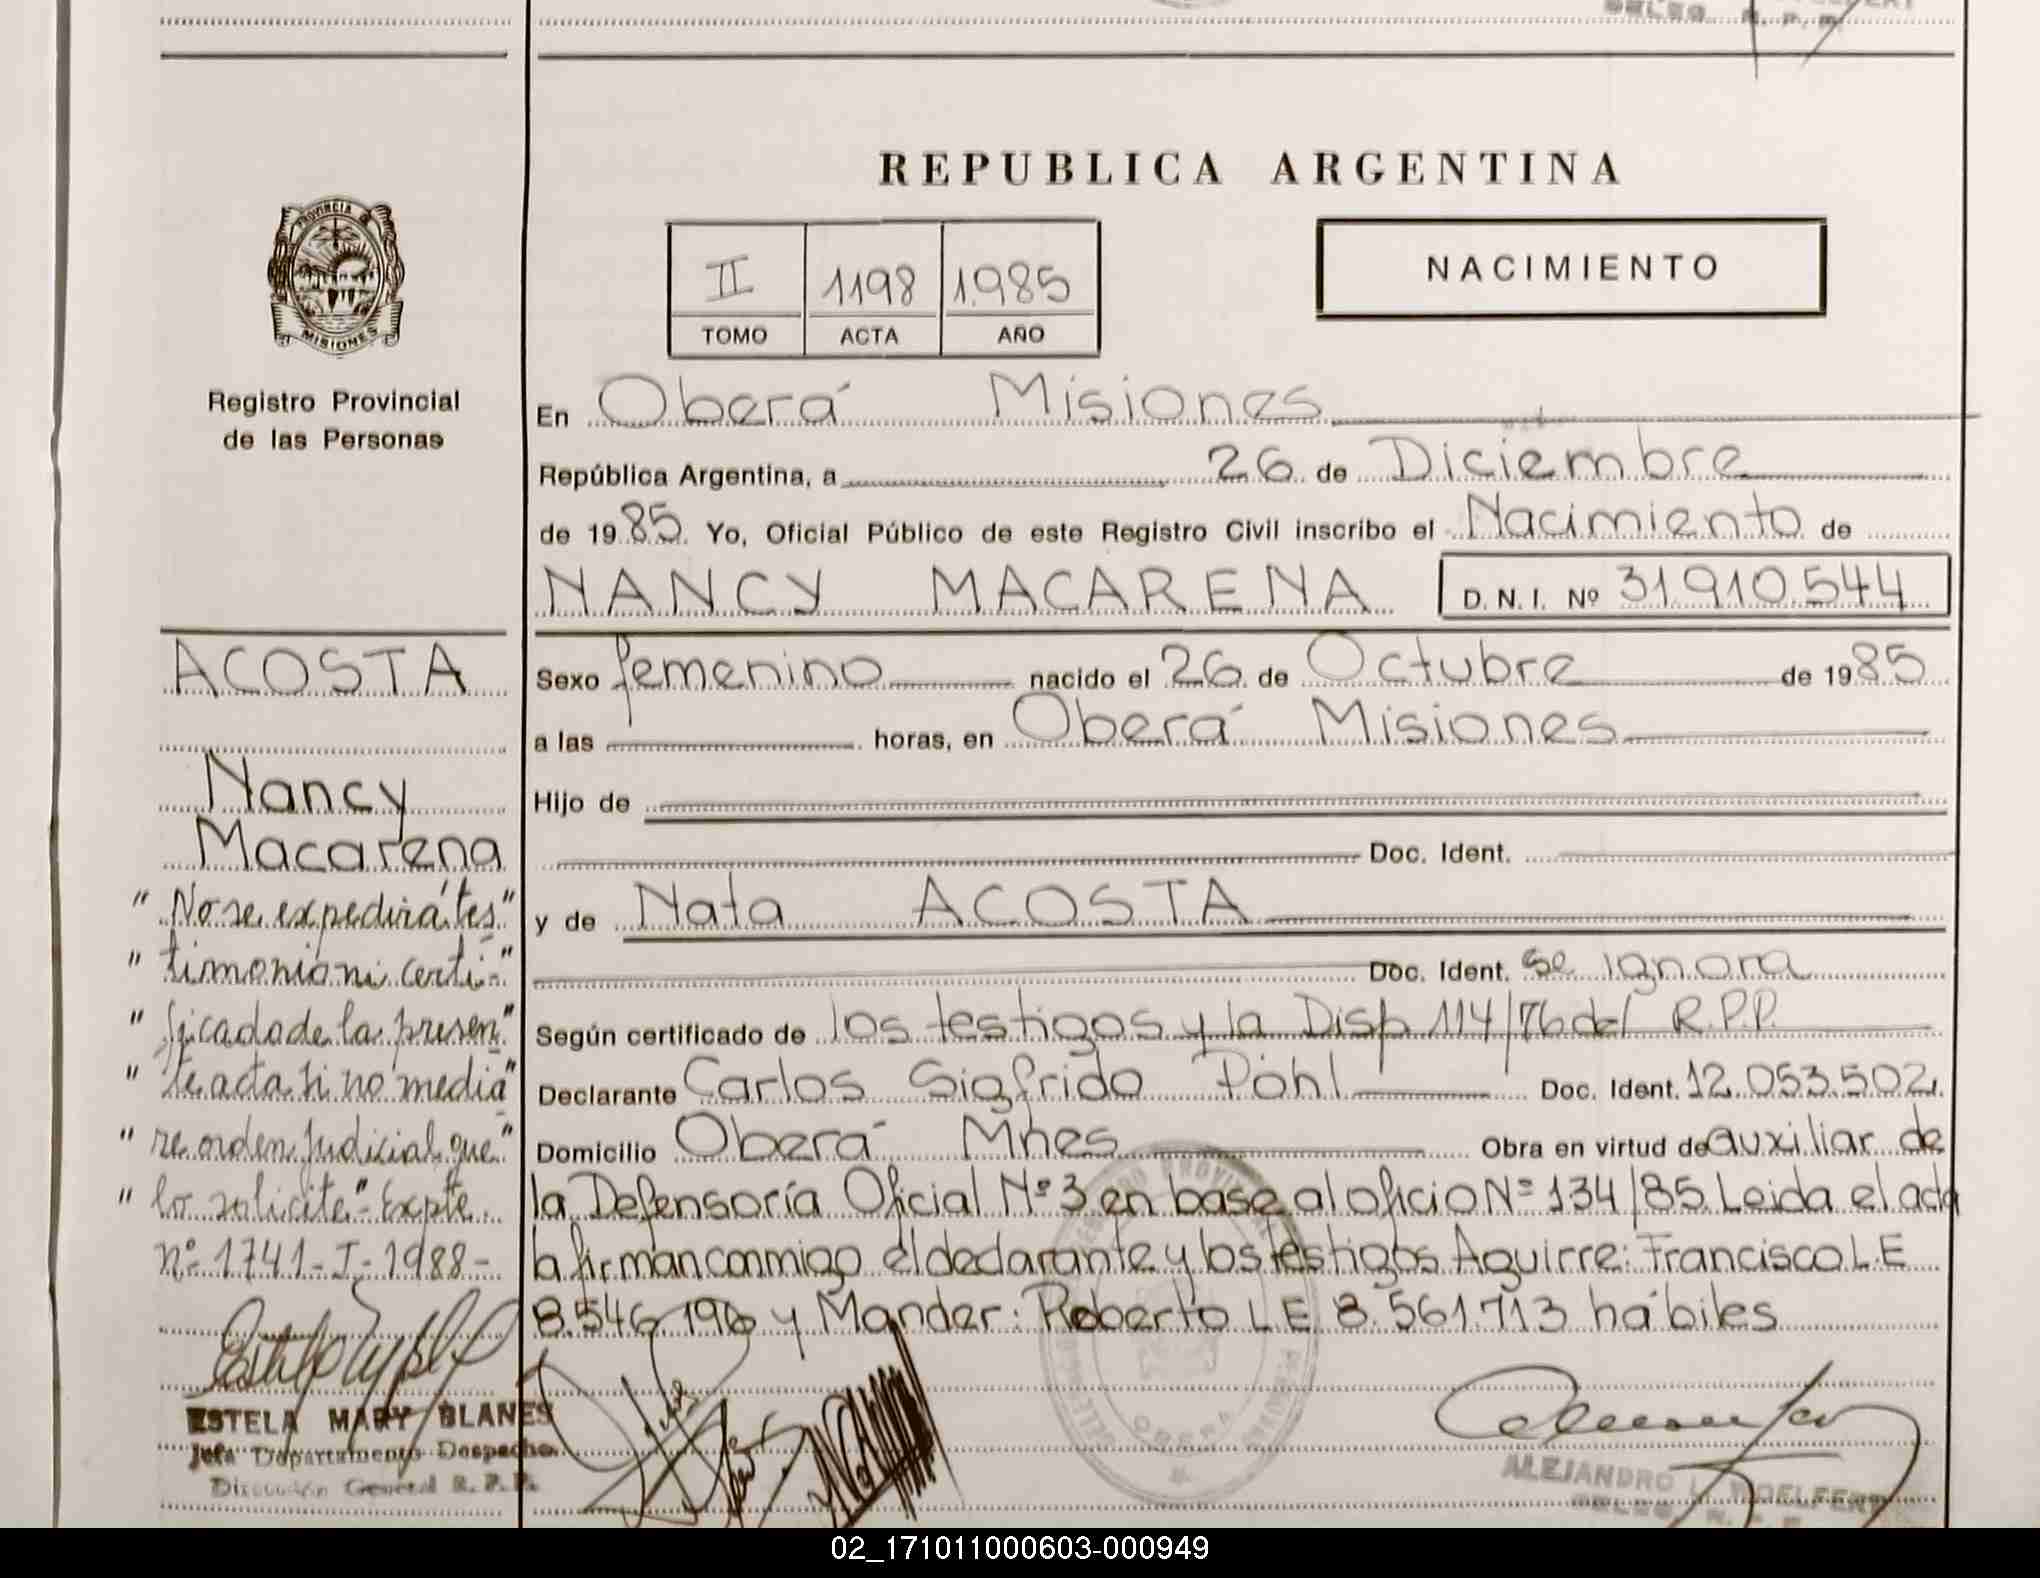 REPUBLICA ARGENTINA
PROVINCIA DE
MISIONES
Registro Provincial
de las Personas
II 1198 1.985
TOMO ACTA AÑO
NACIMIENTO
En Oberá Misiones
República Argentina, a 26 de Diciembre
de 1985. Yo, Oficial Público de este Registro Civil inscribo el Nacimiento de
NANCY MACARENA D. N. I. Nº 31.910.544
ACOSTA
Nancy
Macarena
" No se expedirá tes"
" timonio ni certi-"
" ficado de la presen"
" te acta si no media"
" re orden judicial que"
" lo solicite"- Expte.
nº 1741-I-1988-
ESTELA MARY BLANES
Jefa Departamento Despacho
Dirección General R. P. P.
Sexo femenino nacido el 26 de Octubre de 1985
a las horas, en Oberá Misiones
Hijo de
Doc. Ident.
y de Nata ACOSTA
Doc. Ident. se ignora
Según certificado de los testigos y la Disp 114/76 del R.P.P.
Declarante Carlos Sigfrido Pohl Doc. Ident. 12.053.502.
Domicilio Oberá Mnes Obra en virtud de auxiliar de
la Defensoría Oficial Nº 3 en base al oficio Nº 134/85. Leida el acta
la firman conmigo el declarante y los testigos Aguirre: Francisco L.E
8.546.196 y Mander: Roberto L E 8.561.713 hábiles
OBERA
ALEJANDRO L.
02_171011000603-000949